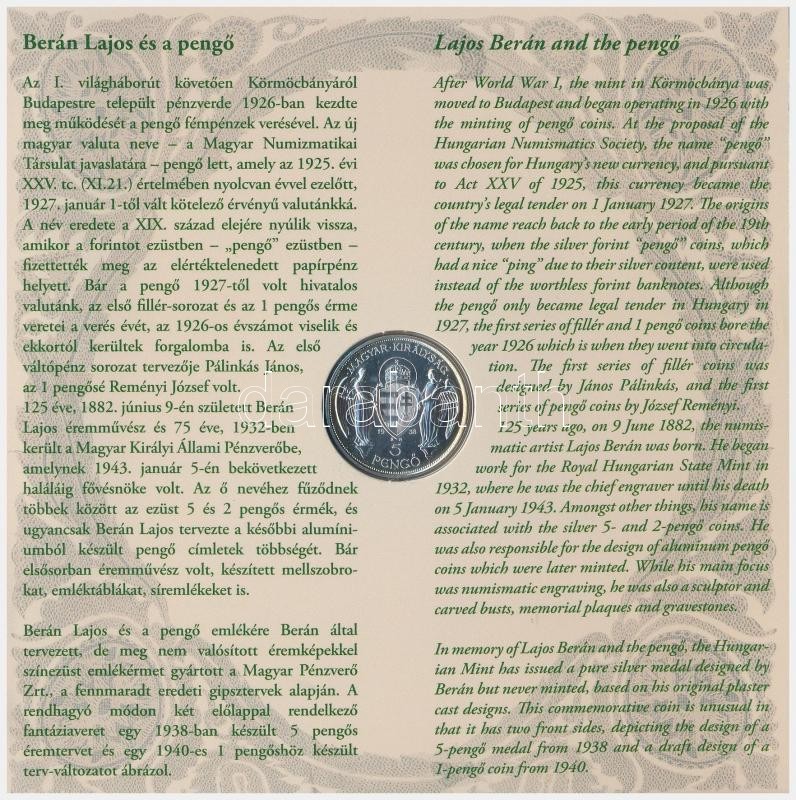 Berán Lajos és a pengő
Az I. világháborút követően Körmöcbányáról
Budapestre települt pénzverde 1926-ban kezdte
meg működését a pengő fémpénzek verésével. Az új
magyar valuta neve – a Magyar Numizmatikai
Társulat javaslatára – pengő lett, amely az 1925. évi
XXV. tc. (XI.21.) értelmében nyolcvan évvel ezelőtt,
1927. január 1-től vált kötelező érvényű valutánkká.
A név eredete a XIX. század elejére nyúlik vissza,
amikor a forintot ezüstben – „pengő” ezüstben –
fizettették meg az elértéktelenedett papírpénz
helyett. Bár a pengő 1927-től volt hivatalos
valutánk, az első fillér-sorozat és az 1 pengős érme
veretei a verés évét, az 1926-os évszámot viselik és
ekkortól kerültek forgalomba is. Az első
váltópénz sorozat tervezője Pálinkás János,
az 1 pengősé Reményi József volt.
125 éve, 1882. június 9-én született Berán
Lajos éremművész és 75 éve, 1932-ben
került a Magyar Királyi Állami Pénzverőbe,
amelynek 1943. január 5-én bekövetkezett
haláláig fővésnöke volt. Az ő nevéhez fűződnek
többek között az ezüst 5 és 2 pengős érmék, és
ugyancsak Berán Lajos tervezte a későbbi alumíni-
umból készült pengő címletek többségét. Bár
elsősorban éremművész volt, készített mellszobro-
kat, emléktáblákat, síremlékeket is.
Berán Lajos és a pengő emlékére Berán által
tervezett, de meg nem valósított éremképekkel
színezüst emlékérmet gyártott a Magyar Pénzverő
Zrt., a fennmaradt eredeti gipsztervek alapján. A
rendhagyó módon két előlappal rendelkező
fantáziaveret egy 1938-ban készült 5 pengős
éremtervet és egy 1940-es 1 pengőshöz készült
terv-változatot ábrázol.
Lajos Berán and the pengő
After World War I, the mint in Körmöcbánya was
moved to Budapest and began operating in 1926 with
the minting of pengő coins. At the proposal of the
Hungarian Numismatics Society, the name “pengő”
was chosen for Hungary's new currency, and pursuant
to Act XXV of 1925, this currency became the
country's legal tender on 1 January 1927. The origins
of the name reach back to the early period of the 19th
century, when the silver forint “pengő” coins, which
had a nice “ping” due to their silver content, were used
instead of the worthless forint banknotes. Although
the pengő only became legal tender in Hungary in
1927, the first series of fillér and 1 pengő coins bore the
year 1926 which is when they went into circula-
tion. The first series of fillér coins was
designed by János Pálinkás, and the first
series of pengő coins by József Reményi.
125 years ago, on 9 June 1882, the numis-
matic artist Lajos Berán was born. He began
work for the Royal Hungarian State Mint in
1932, where he was the chief engraver until his death
on 5 January 1943. Amongst other things, his name is
associated with the silver 5- and 2-pengő coins. He
was also responsible for the design of aluminum pengő
coins which were later minted. While his main focus
was numismatic engraving, he was also a sculptor and
carved busts, memorial plaques and gravestones.
In memory of Lajos Berán and the pengő, the Hungar-
ian Mint has issued a pure silver medal designed by
Berán but never minted, based on his original plaster
cast designs. This commemorative coin is unusual in
that it has two front sides, depicting the design of a
5-pengő medal from 1938 and a draft design of a
1-pengő coin from 1940.
MAGYAR·KIRÁLYSÁG
19 38
5
PENGŐ
darabanth